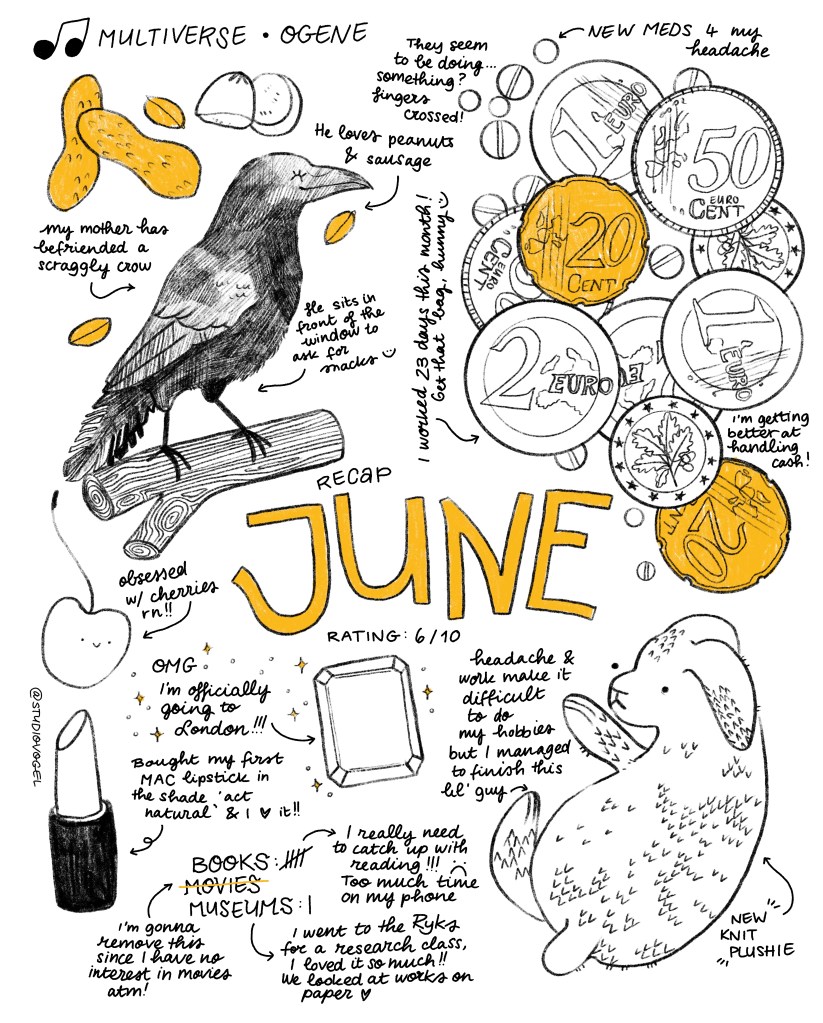 MULTIVERSE • OGENE
They seem
to be doing...
something?
fingers
crossed!
NEW MEDS 4 my
headache
He loves peanuts
& sausage
my mother has
befriended a
scraggly crow
He sits in
front of the
window to
ask for
snacks
I worked 23 days this month!
Get that bag, hunny
1 EURO
50
EURO
CENT
20
CENT
EURO
CENT
2 EURO
1
EURO
1
EURO
20
I'm getting
better at
handling
cash!
RECAP
JUNE
RATING: 6/10
obsessed
w/ cherries
rn!!
OMG
I'm officially
going to
London!!!
headache &
work make it
difficult
to do
my hobbies
but I managed
to finish this
lil' guy
@STUDIOVOGEL
Bought my first
MAC lipstick in
the shade 'act
natural' & I ♥ it!!
BOOKS: 𝍸
MOVIES
MUSEUMS: I
I really need
to catch up with
reading!!!
Too much time
on my phone
I'm gonna
remove this
since I have no
interest in movies
atm!
I went to the Ryks
for a research class,
I loved it so much!!
We looked at works on
paper ♥
NEW
KNIT
PLUSHIE